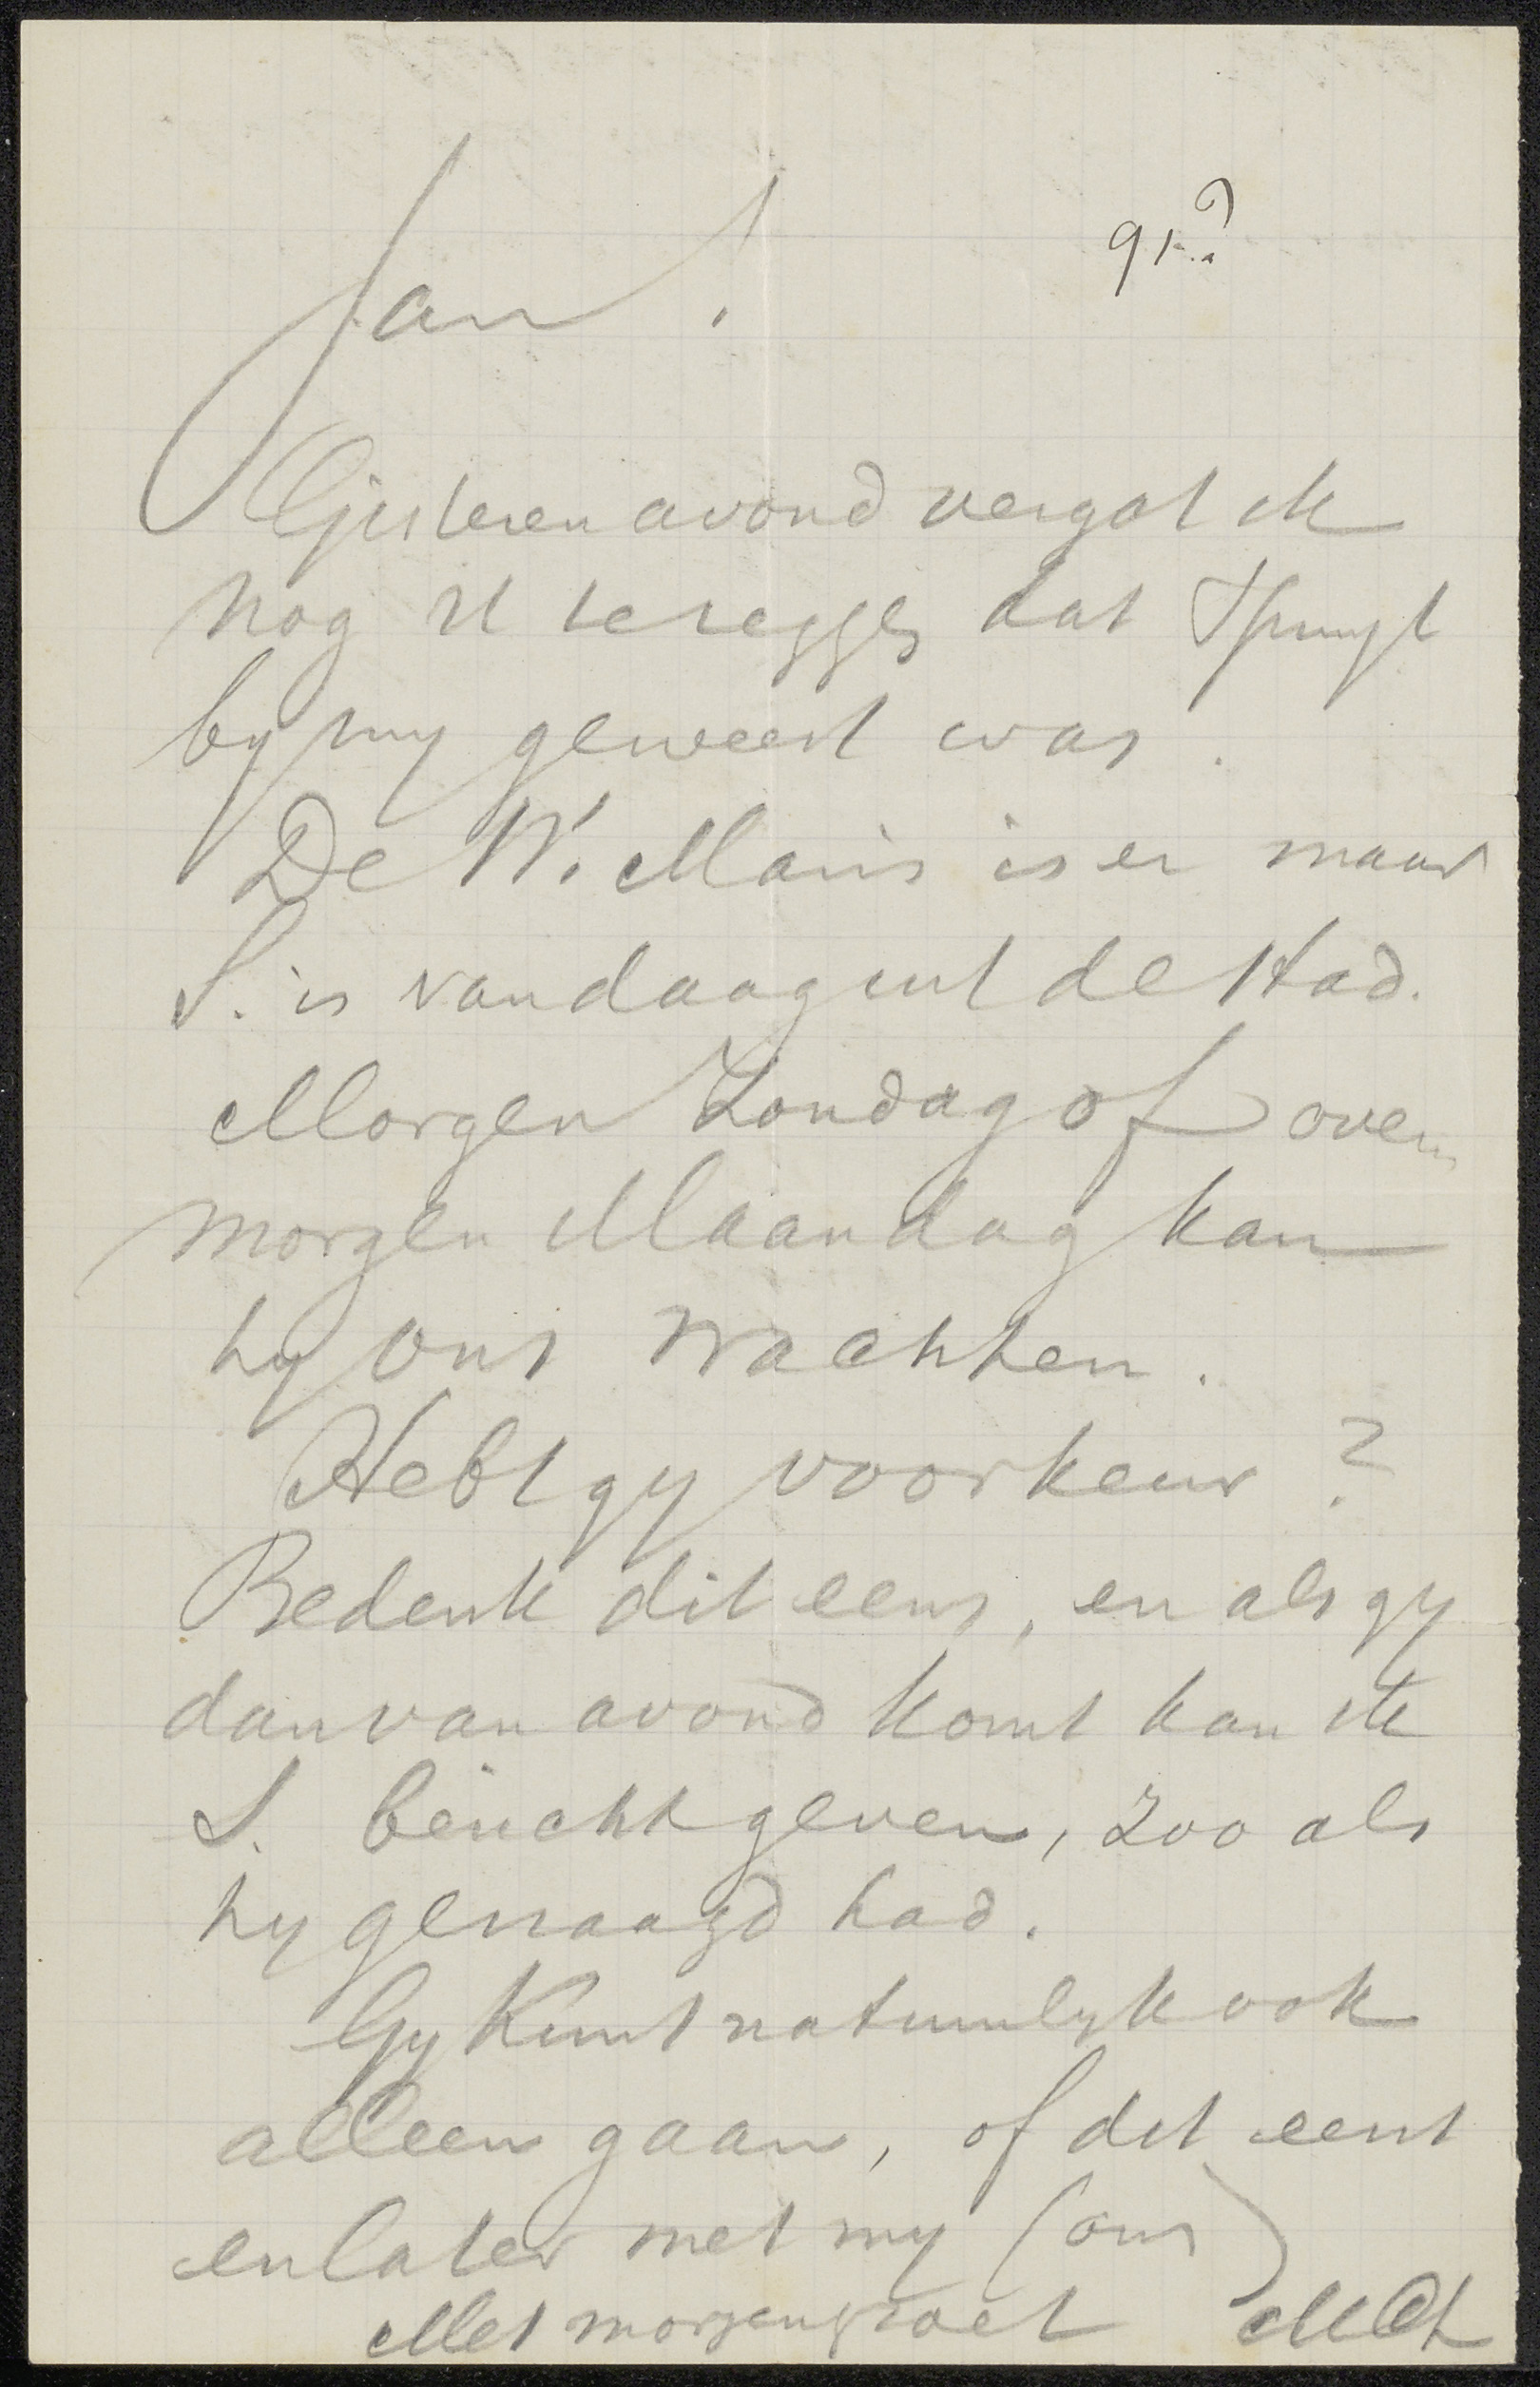 91.?
Jan!
Gisteren avond vergat ik
nog U te zeggen dat Spruyt
by my geweest was.
De W. Maris is er maar
S. is vandaag uit de stad.
Morgen Zondag of over
morgen Maandag kan
hy ons wachten.
Hebt gy voorkeur?
Bedenk dit eens, en als gy
dan van avond komt kan ik
S. bericht geven, zoo als
hy gevraagd had.
Gy kunt natuurlyk ook
alleen gaan, of dit eerst
en later met my (ons)
Met morgengroet